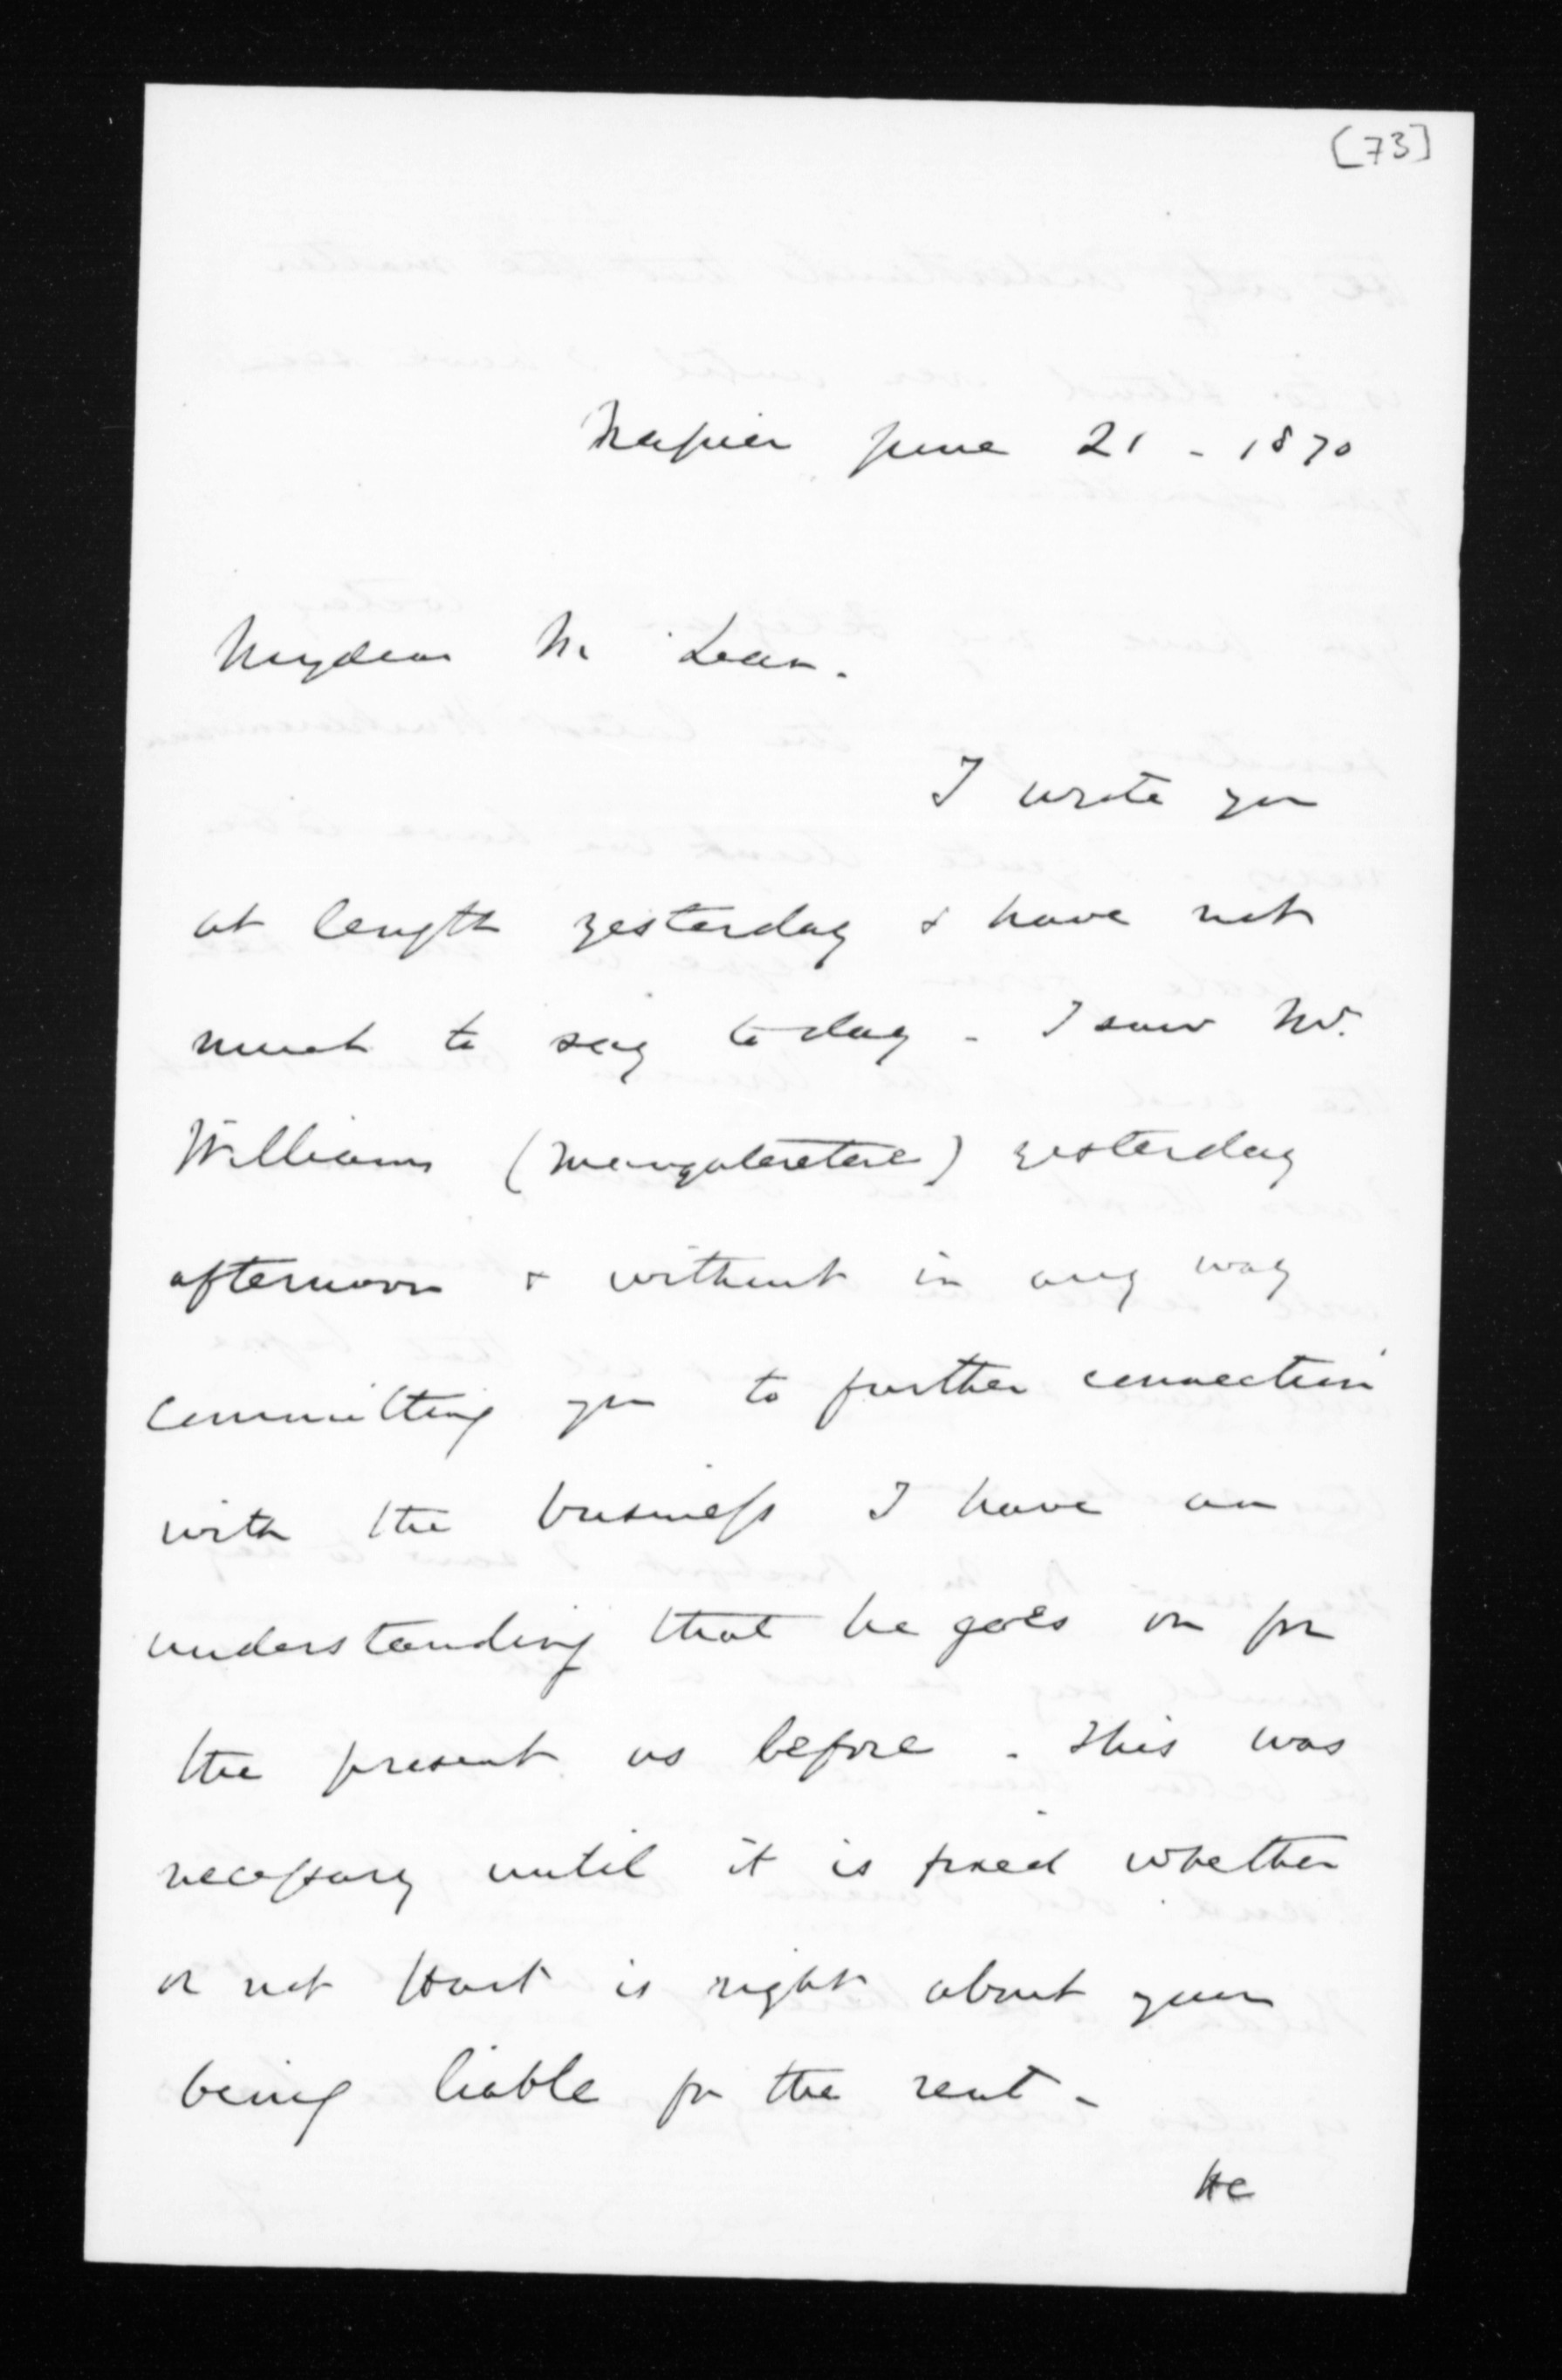 [73]
Napier June 21 - 1870
My dear Mc Lean.
I wrote you
at length yesterday & have not
much to say today - I saw Mr.
Williams (Mangateretere) yesterday
afternoon & without in any way
committing you to further connection
with the business I have an
understanding that he goes on for
the present as before. This was
necessary until it is fixed whether
or not Hart is right about your
being liable for the rent -
He